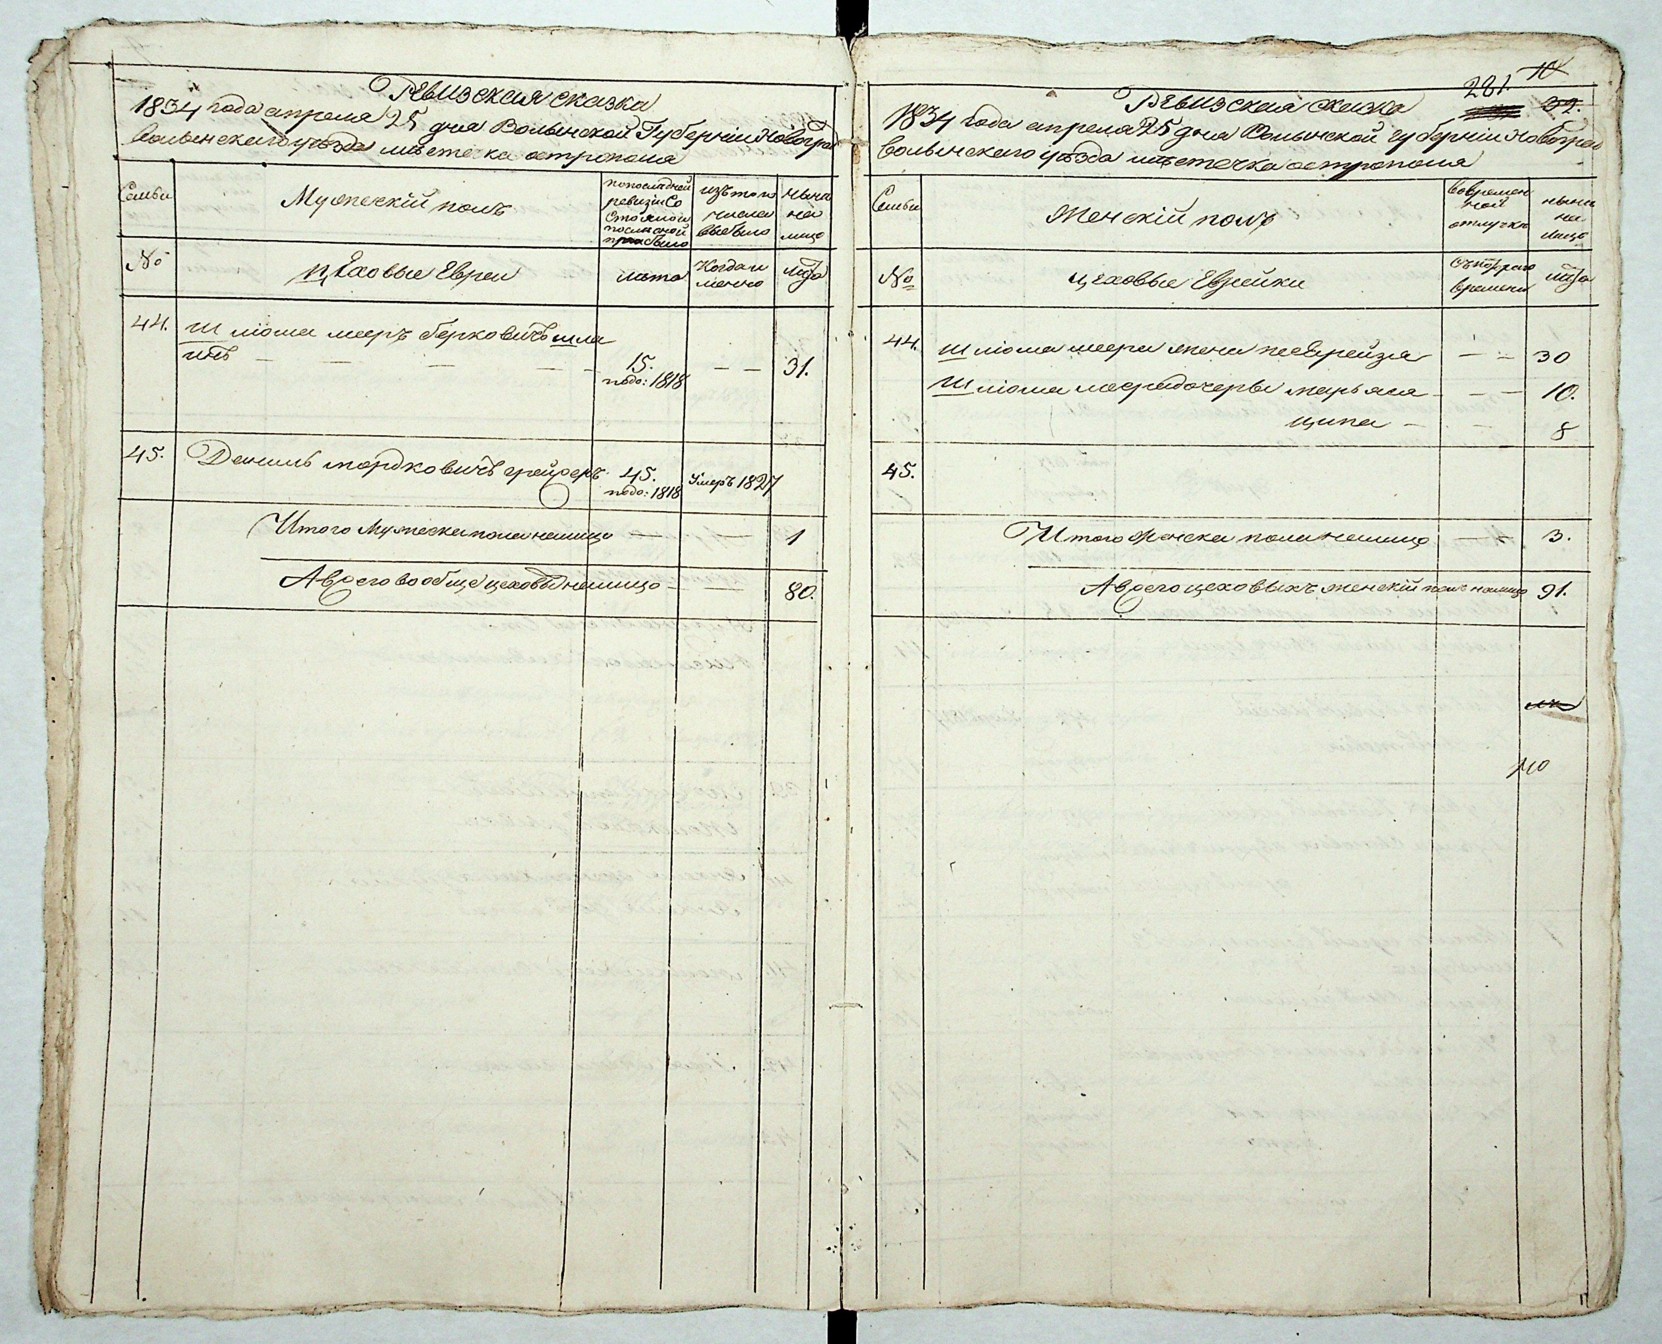 Ревизская сказка
1834 года апреля 25 дня Волынской Губернии Новоград
волынского уѣзда мѣстечка острополя
Семьи
Мужескій полъ
по последней
ревизіи со
стояло и
после оной
прибыло
изъ того
числа
выбыло
ныне
на
лицо
№
цѣховые Евреи
лѣта
Когда и
менно
лѣта
44.
Шліома мееръ берковичъ шля
15.
подо: 1818
31.
45.
Даниль мордковичъ грейзеръ
45.
подо: 1818
Умеръ 1827
Итого Мужеска пола налицо
1
А всего вообще цеховыхъ налицо
80.
281.
10
32.
Ревизская сказка
1834 года апреля 25 дня Волынской губерніи Новоград
волынского уѣзда мѣстечка острополя
Семьи
Женскій полъ
во времен
ной
отлучке
ныне
на
лицо
№
цеховые Еврейки
съ котораго
времени
лѣта
44.
Шліома меера жена песя рейзя
30
Шліома меера дочеры марьяся
10.
ципа
8
45.
Итого Женска пола налицо
3.
А всего цеховыхъ женскій полъ налицо
91.